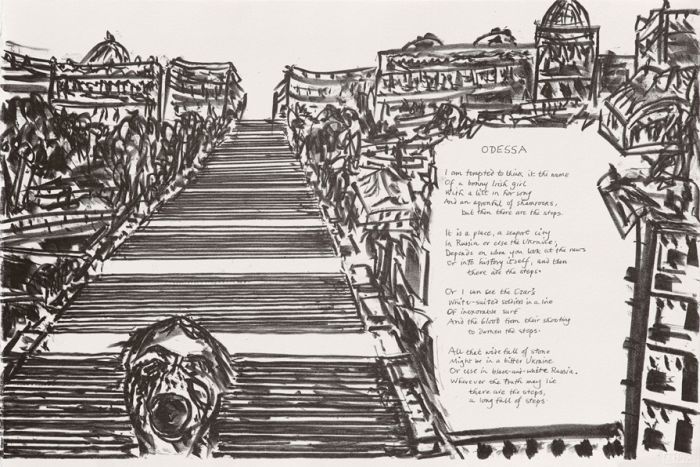 ODESSA
I am tempted to think it the name
Of a bonny Irish girl
With a lilt in her song
And an apronful of shamrocks,
but then there are the steps.
It is a place, a seaport city
In Russia or else the Ukraine,
Depends on when you look at the news
Or into history itself, and then
there are the steps.
Or I can see the Czar's
White-suited soldiers in a line
Of inexorable surf
And the blood from their shooting
to darken the steps.
All that wide fall of stone
Might be in a bitter Ukraine
Or else in black-and-white Russia.
Wherever the truth may lie
there are the steps,
a long fall of steps.